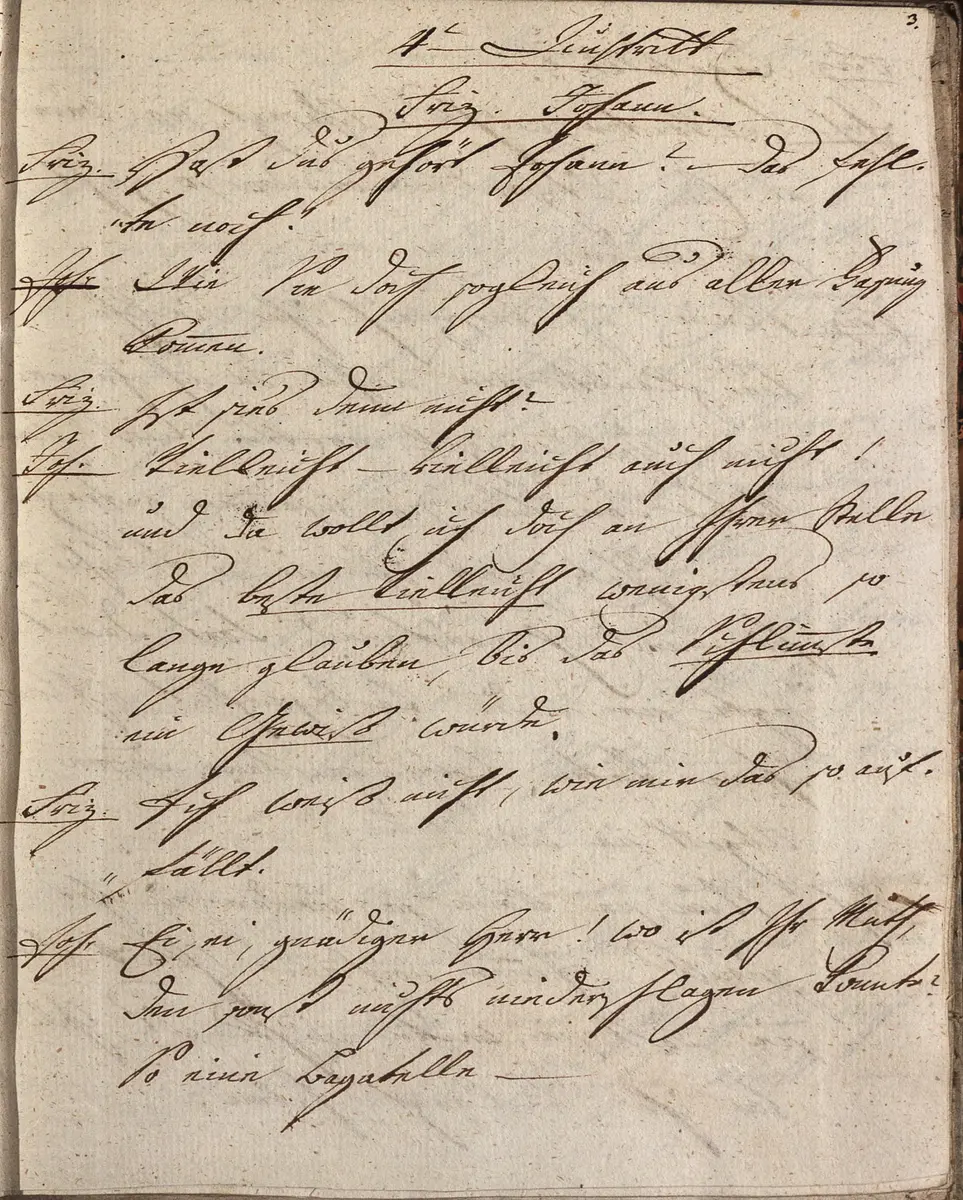 3.
4r Auftritt
Friz. Johann.
Friz. Hast du's gehört Johann? – das fehl-
"te noch!
Joh. Wie Sie doch sogleich aus aller Faßung
kom̄en.
Friz. Ist sies denn nicht?
Joh. Vielleicht – vielleicht auch nicht!
und da wollt ich doch an Ihrer Stelle
das beste Vielleicht wenigstens so
lange glauben, bis das Schlim̄ste
ein Gewiß würde.
Friz. Ich weiß nicht, wie mir das so auf-
" fällt.
Joh. Ei, ei, gnädiger Herr! wo ist Ihr Muth,
den sonst nichts niederschlagen konnte?
So eine Bagatelle —